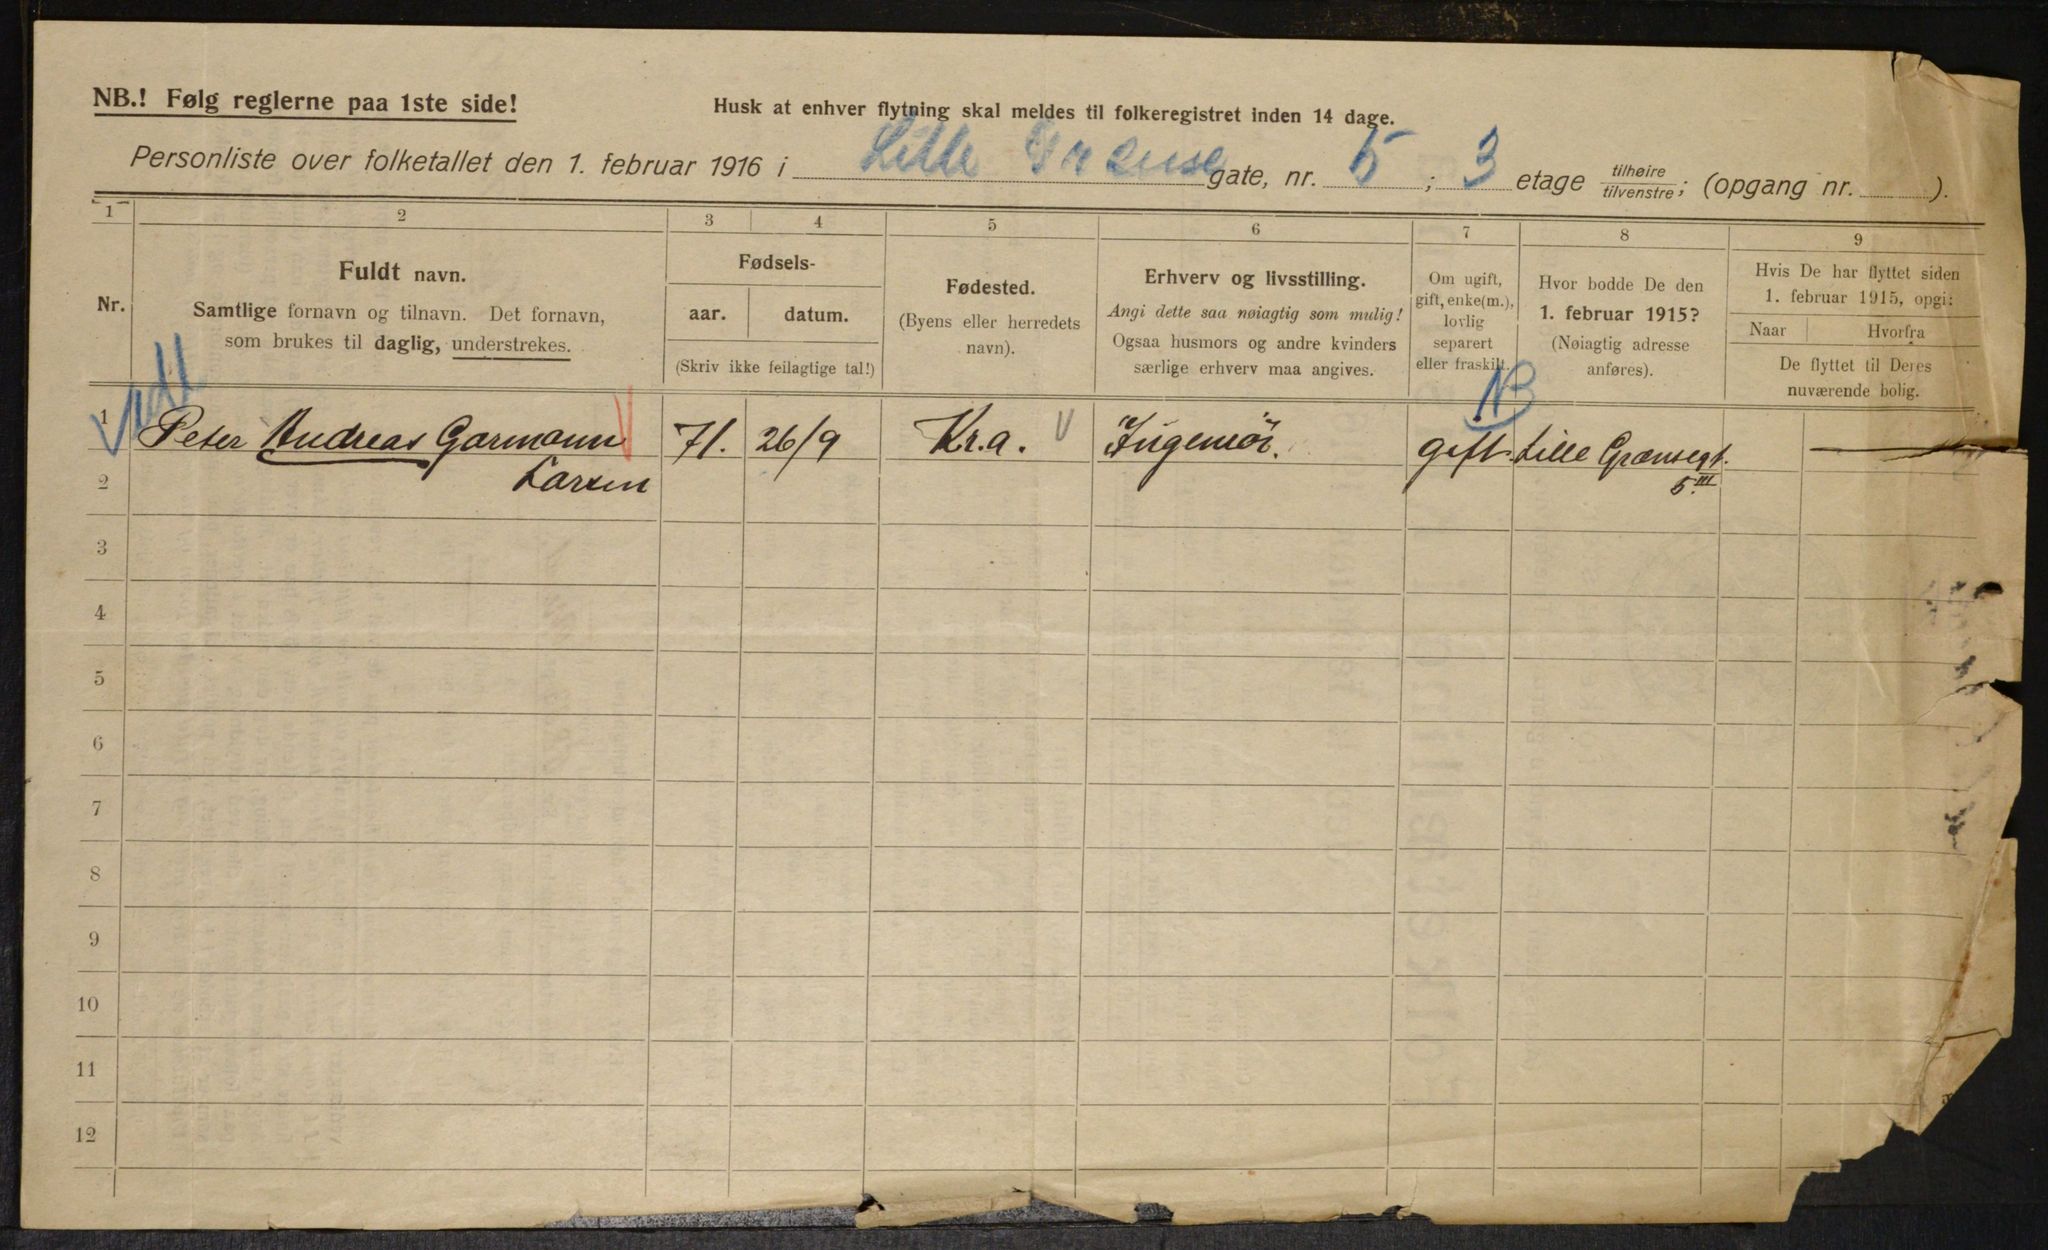 NB.! Følg reglerne paa 1ste side!
Husk at enhver flytning skal meldes til folkeregistret inden 14 dage.
Personliste over folketallet den 1. februar 1916 i Lille Grænse gate, nr. 5 ; 3 etage tilhøire tilvenstre; (opgang nr. ).
1 2 3 4 5 6 7 8 9
Nr.
Fuldt navn.
Samtlige fornavn og tilnavn. Det fornavn,
som brukes til daglig, understrekes.
Fødsels-
aar. datum.
(Skriv ikke feilagtige tal!)
Fødested.
(Byens eller herredets
navn).
Erhverv og livsstilling.
Angi dette saa nøiagtig som mulig!
Ogsaa husmors og andre kvinders
særlige erhverv maa angives.
Om ugift,
gift, enke(m.),
lovlig
separert
eller fraskilt.
Hvor bodde De den
1. februar 1915?
(Nøiagtig adresse
anføres).
Hvis De har flyttet siden
1. februar 1915, opgi:
Naar Hvorfra
De flyttet til Deres
nuværende bolig.
NB
1 Peter Andreas Garmann 71. 26/9 Kr.a. Ingeniør. gift Lille Grænsegt.
2 Larsen 5 III
3
4
5
6
7
8
9
10
11
12